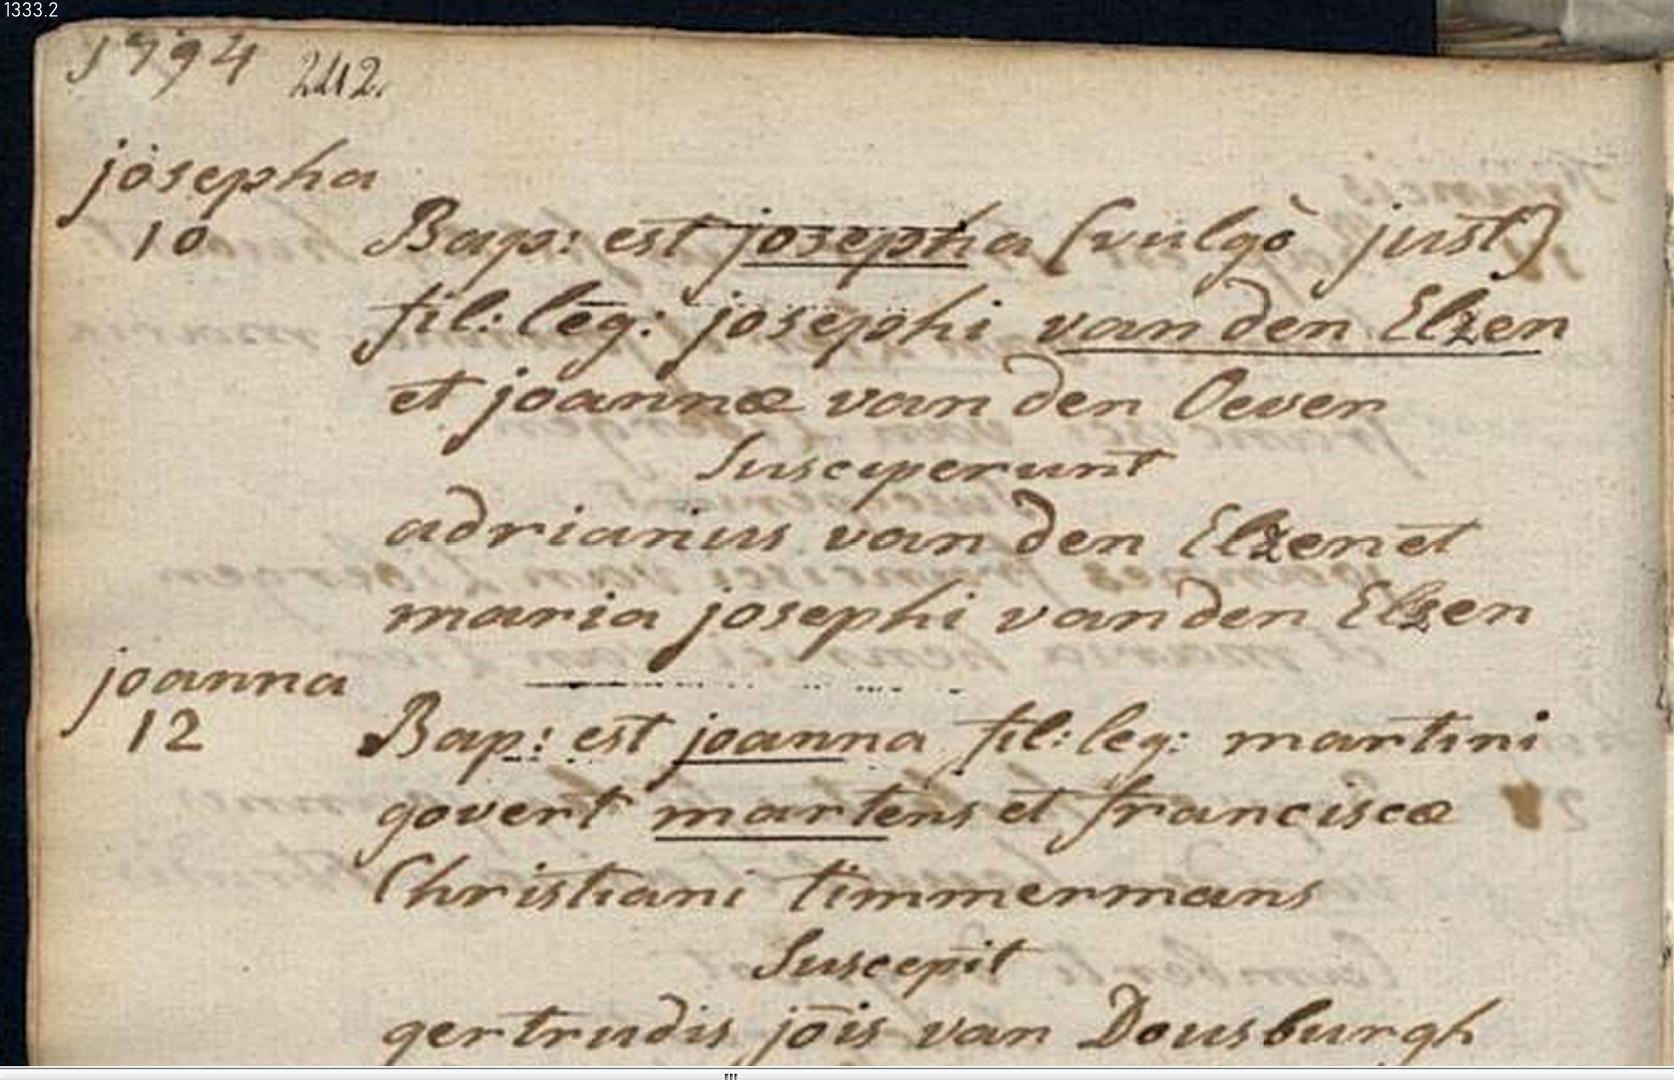 1333.2
1794 242.
josepha
10 Bap: est josepha (vulgò just)
fil: leg: josephi van den Elzen
et joannæ van den Oever
Susceperunt
adrianus van den Elzen et
maria josephi van den Elzen
joanna
12 Bap: est joanna fil: leg: martini
govert martens et franciscæ
Christiani timmermans
Suscepit
gertrudis jõis van Dousburgh